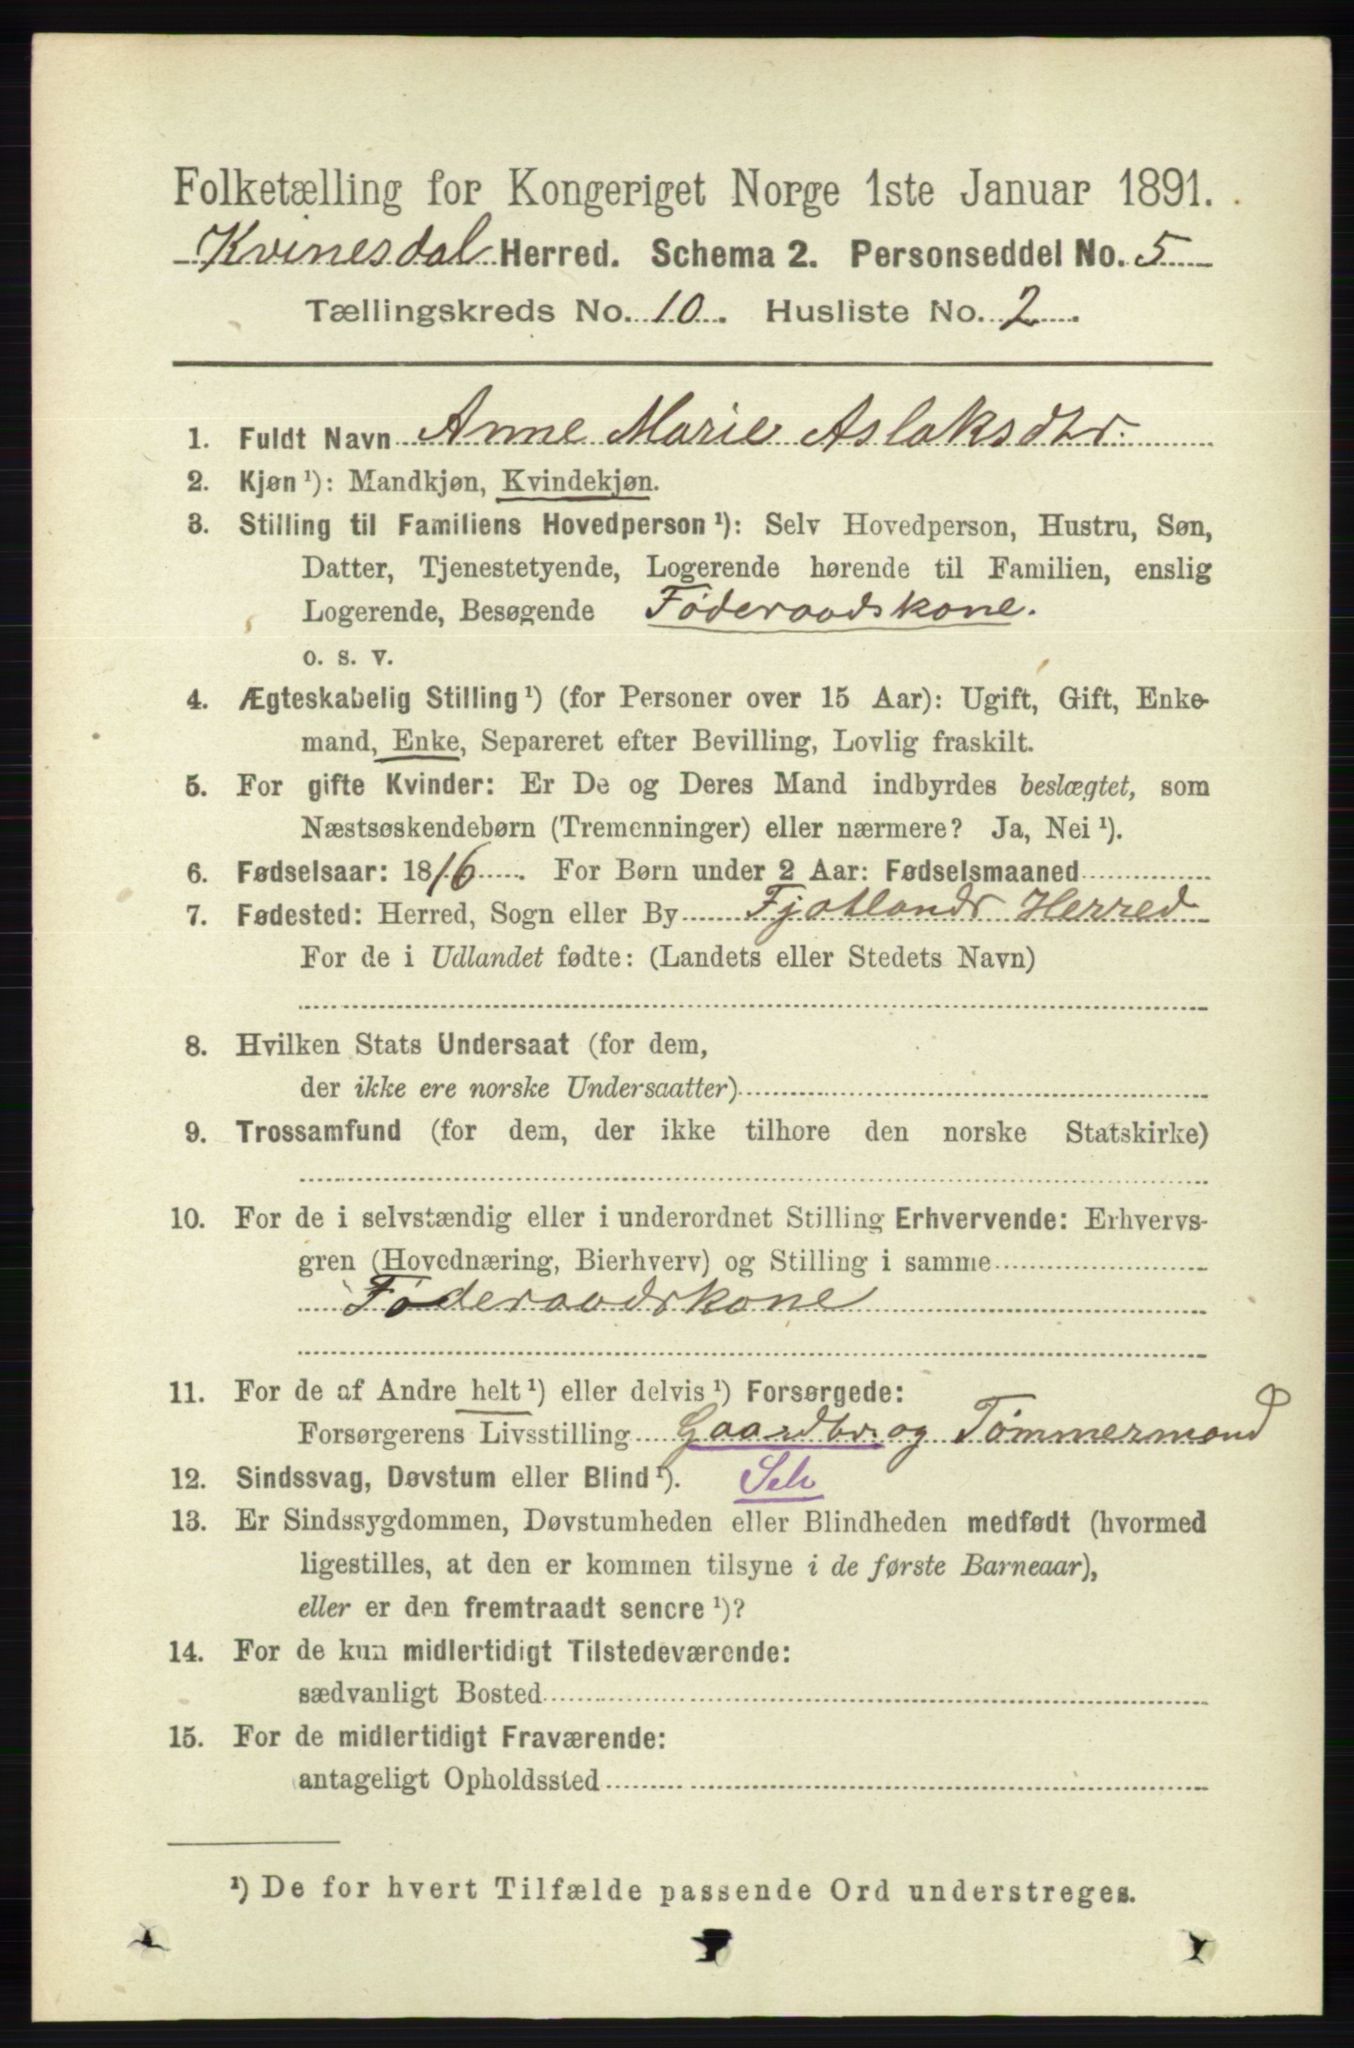 Folketælling for Kongeriget Norge 1ste Januar 1891.
Kvinesdal Herred. Schema 2. Personseddel No. 5
Tællingskreds No. 10. Husliste No. 2.
1. Fuldt Navn Anne Marie Aslaksdtr.
2. Kjøn ¹): Mandkjøn, Kvindekjøn.
3. Stilling til Familiens Hovedperson ¹): Selv Hovedperson, Hustru, Søn,
Datter, Tjenestetyende, Logerende hørende til Familien, enslig
Logerende, Besøgende Føderaadskone.
o. s. v.
4. Ægteskabelig Stilling ¹) (for Personer over 15 Aar): Ugift, Gift, Enke-
mand, Enke, Separeret efter Bevilling, Lovlig fraskilt.
5. For gifte Kvinder: Er De og Deres Mand indbyrdes beslægtet, som
Næstsøskendebørn (Tremenninger) eller nærmere? Ja, Nei ¹).
6. Fødselsaar: 1816. For Børn under 2 Aar: Fødselsmaaned
7. Fødested: Herred, Sogn eller By Fjotlands Herred
For de i Udlandet fødte: (Landets eller Stedets Navn)
8. Hvilken Stats Undersaat (for dem,
der ikke ere norske Undersaatter)
9. Trossamfund (for dem, der ikke tilhore den norske Statskirke)
10. For de i selvstændig eller i underordnet Stilling Erhvervende: Erhvervs-
gren (Hovednæring, Bierhverv) og Stilling i samme
Føderaadskone
11. For de af Andre helt ¹) eller delvis ¹) Forsørgede:
Forsørgerens Livsstilling Gaardbr. og Tømmermand
12. Sindssvag, Døvstum eller Blind ¹). Selv
13. Er Sindssygdommen, Døvstumheden eller Blindheden medfødt (hvormed
ligestilles, at den er kommen tilsyne i de første Barneaar),
eller er den fremtraadt senere ¹)?
14. For de kun midlertidigt Tilstedeværende:
sædvanligt Bosted
15. For de midlertidigt Fraværende:
antageligt Opholdssted
¹) De for hvert Tilfælde passende Ord understreges.